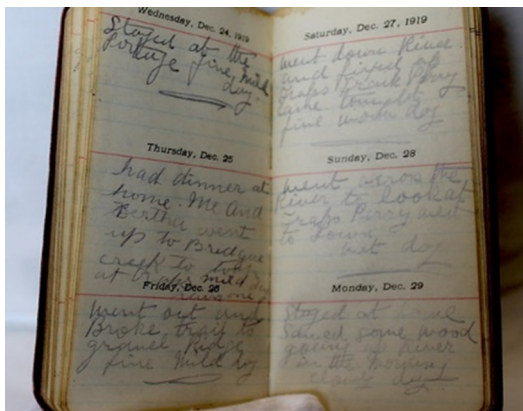 Wednesday, Dec. 24, 1919
Stayed at the
Portage fine, mild
day.
Thursday, Dec. 25
had dinner at
home. Me And
Bertha went
up to Bridgue
creek to
at mild
Friday, Dec. 26
went out and
Broke trail to
gravel
fine Mild
Saturday, Dec. 27, 1919
went down River
and fixed up
Traps Frank Perry
came
fine warm day
Sunday, Dec. 28
went across the
River to look at
Traps Perry went
to
wet day
Monday, Dec. 29
Stayed at
Sawed some wood
going up River
in the morning
day